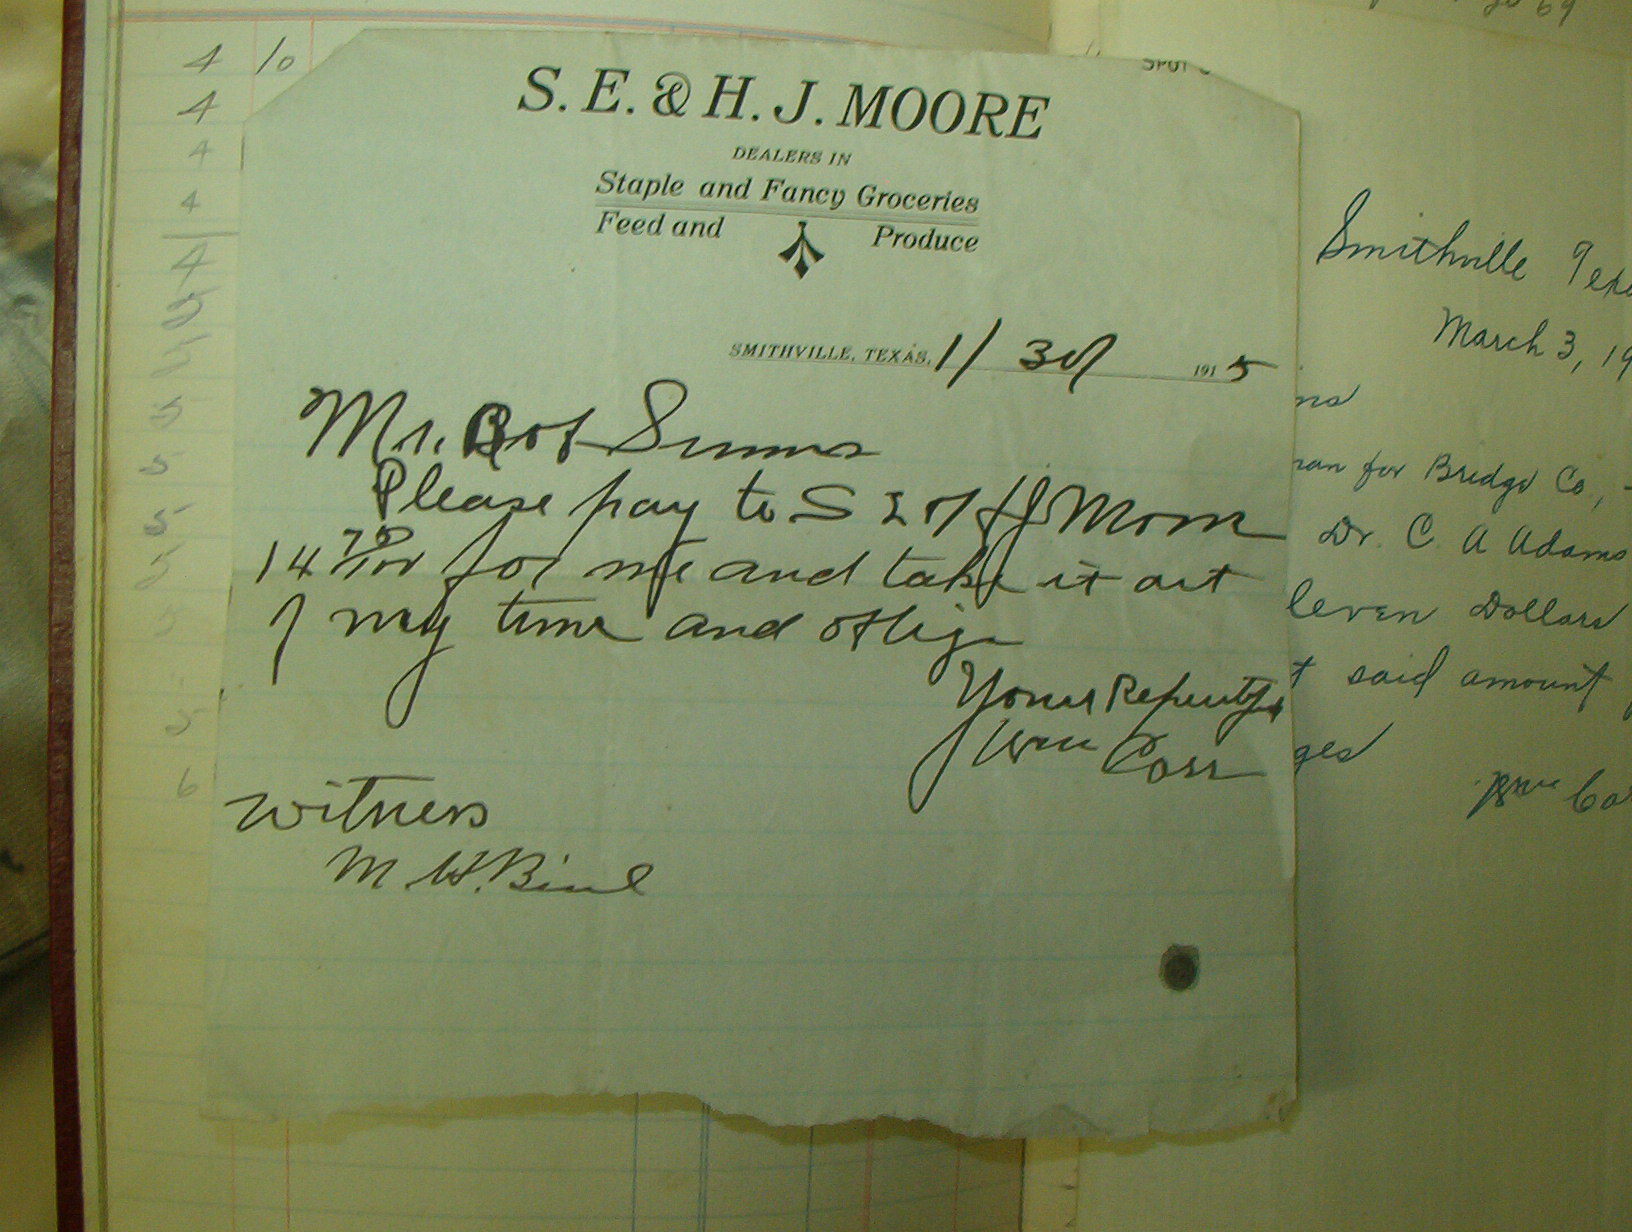 4 10
4
4
4
4
5
5
5
5
5
5
6
S. E. & H. J. MOORE
DEALERS IN
Staple and Fancy Groceries
Feed and Produce
SMITHVILLE, TEXAS, 1/30/ 1915
Mr. Bob Simms
Please pay to S E & H J Moore
14 70/100 for me and take it out
of my time and oblige
Yours Respectfully
Wm Carr
Witness
M. W.
69
SPOT
Smithville Texas
March 3, 19
for Bridge Co,
Dr. C. A Adams
leven Dollars
t said amount
ges
Wm Ca